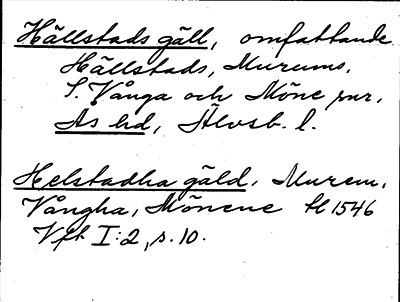 Hällstads gäll, omfattande
Hällstads, Murums,
S. Vånga och Möne snr,
Ås hd, Älvsb. l.
Helstadha gäld, Murem,
Vångha, Mönene H 1546
Vft I:2, s. 10.